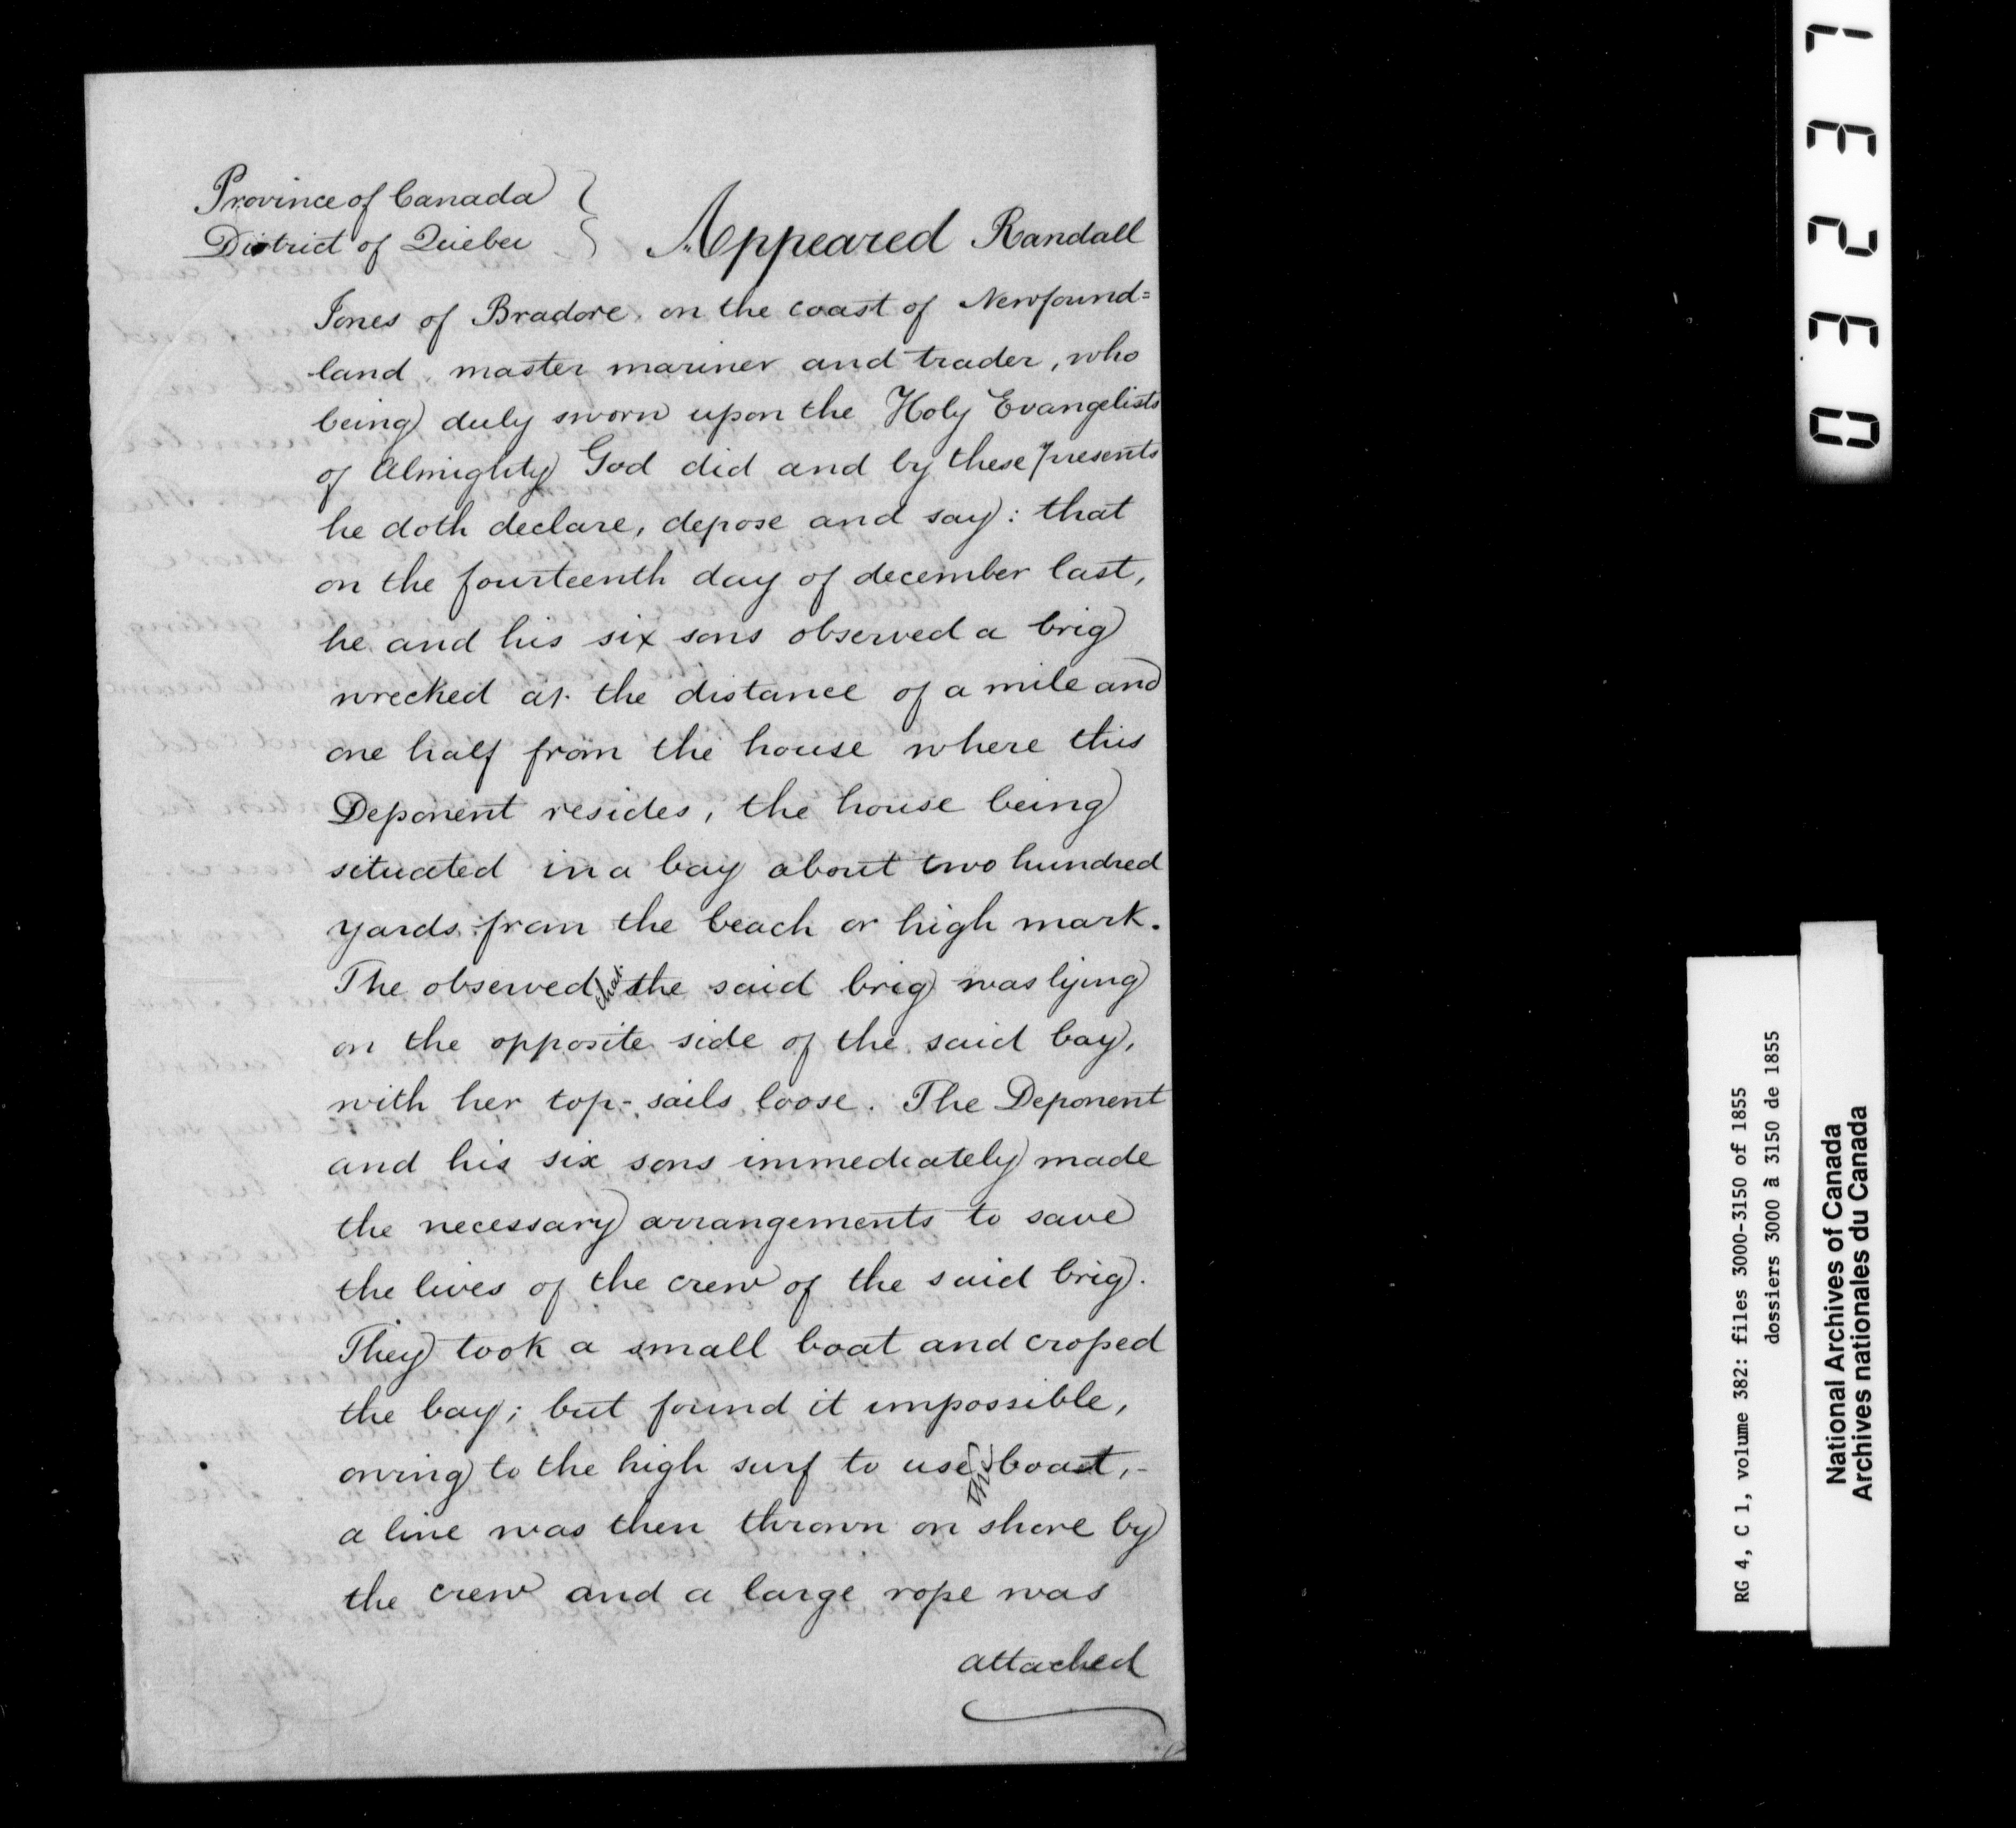 Province of Canada
District of Quebec
Appeared Randall
Jones of Bradore, on the coast of Newfound=
land, master mariner and trader, who
being duly sworn upon the Holy Evangelists
of Almighty God did and by these presents
he doth declare, depose and say: that
on the fourteenth day of december last,
he and his six sons observed a brig
wrecked at the distance of a mile and
one half from the house where this
Deponent resides, the house being
situated in a bay about two hundred
yards from the beach or high mark.
The observed that the said brig was lying
on the opposite side of the said bay,
with her top-sails loose. The Deponent
and his six sons immediately made
the necessary arrangements to save
the lives of the crew of the said brig.
They took a small boat and croped
the bay; but found it impossible,
owing to the high surf to use the boat,-
a line was then thrown on shore by
the crew and a large rope was
attached
03237
RG 4, C 1, volume 382: files 3000-3150 of 1855
dossiers 3000 à 3150 de 1855
National Archives of Canada
Archives nationales du Canada